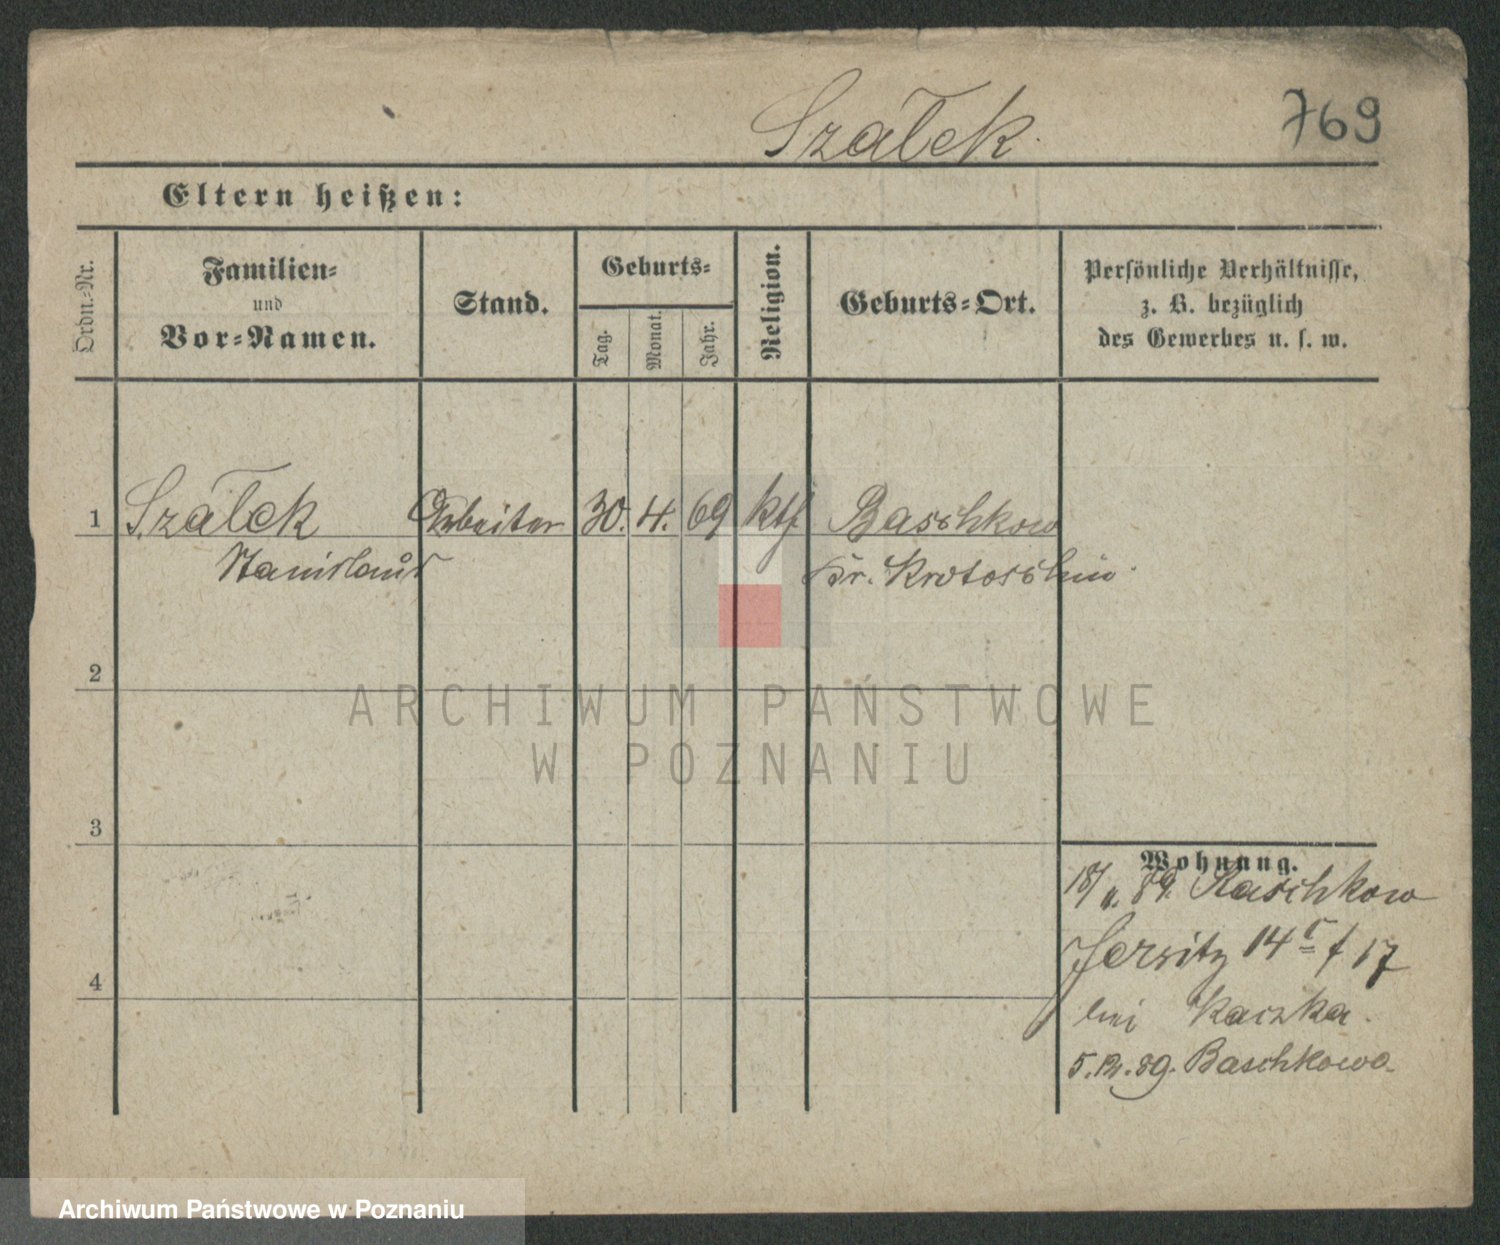 Szałek.
769
Eltern heißen:
Ordn.-Nr.
Familien-
und
Vor-Namen.
Stand.
Geburts-
Tag.
Monat.
Jahr.
Religion.
Geburts-Ort.
Persönliche Verhältnisse,
z. B. bezüglich
des Gewerbes u. s. w.
1 Szałek Arbeiter 30. 4. 69 kth Baschkow
Stanislaus Kr. Krotoschin.
2
ARCHIWUM PAŃSTWOWE
W POZNANIU
3
Wohnung.
18/ 89. Raschkow
Jersitz 14 17
bei Kaczka.
4
5.12.89. Baschkowo.
Archiwum Państwowe w Poznaniu